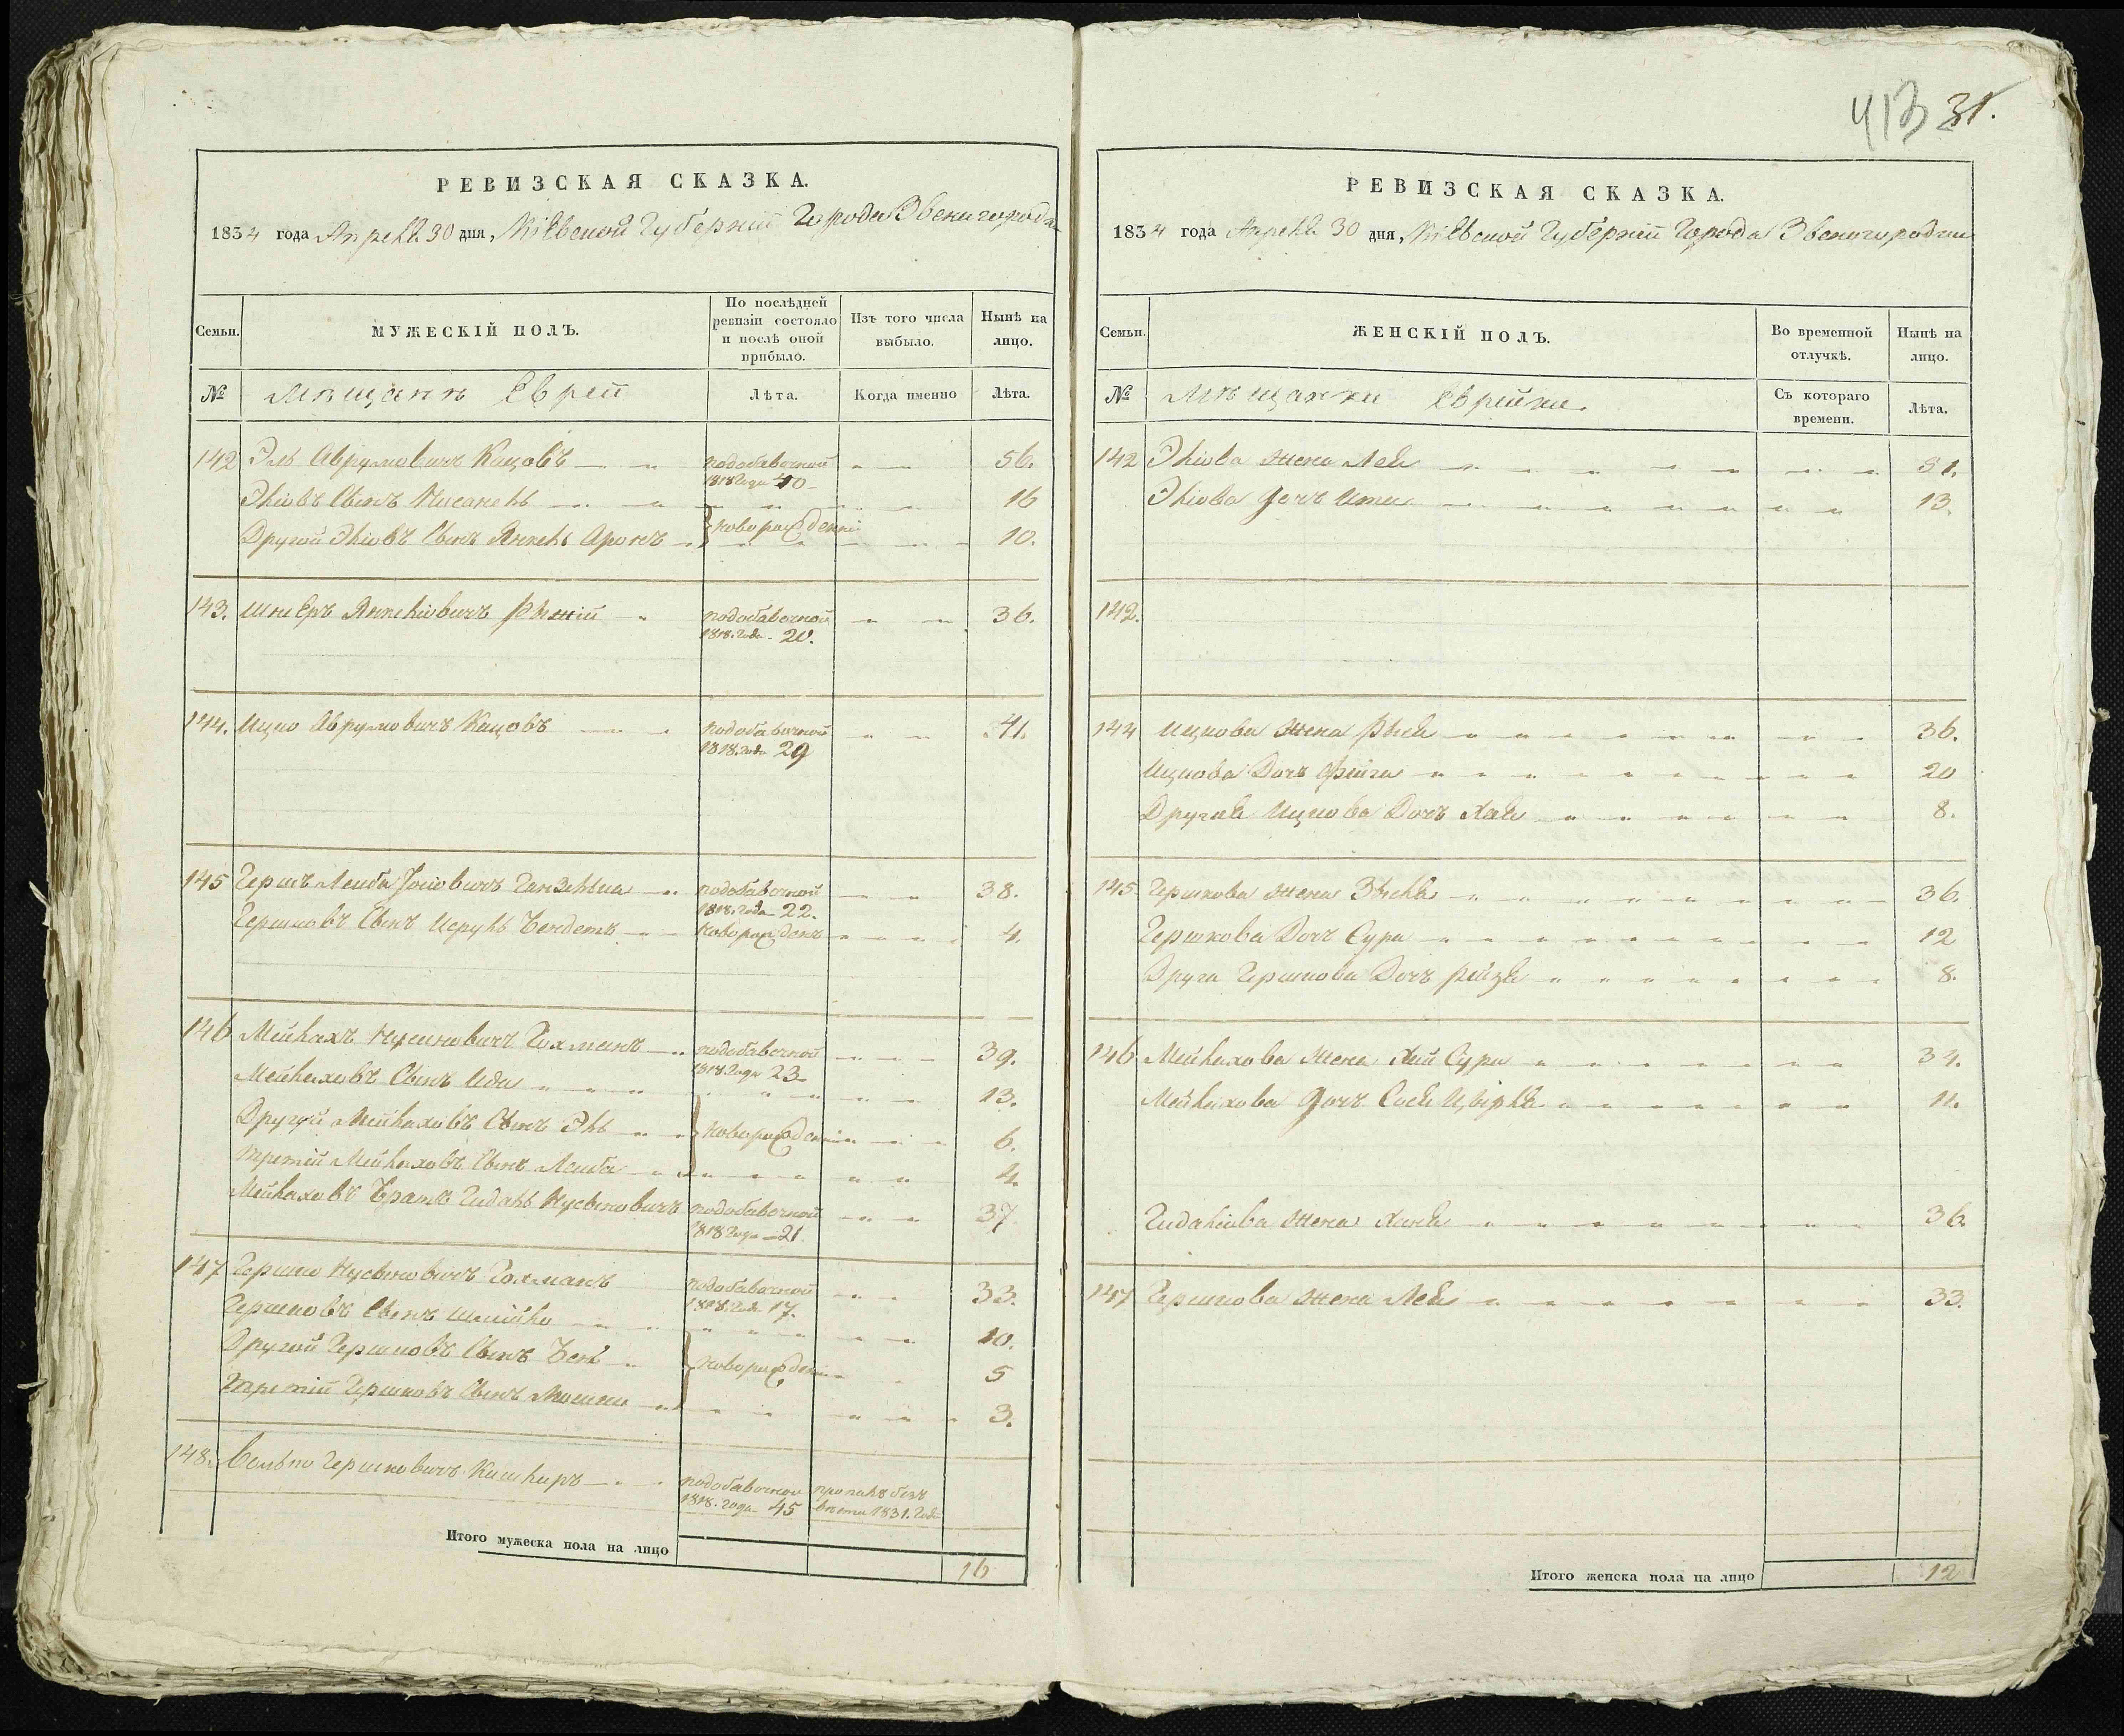 413 31.
РЕВИЗСКАЯ СКАЗКА.
1834 года Апреля 30 дня, Кіевской Губерніи Города Звенигородки
Семьи.
МУЖЕСКІЙ ПОЛЪ.
По послѣдней ревизіи состояло и послѣ оной прибыло.
Изъ того числа выбыло.
Нынѣ на лицо.
№
Мѣщанъ Еврей
Лѣта.
Когда именно
Лѣта.
142 Эль Аврумовичъ Кацовъ подобавочной 1818 Года 40 56.
Эліовъ Сынъ Нисанель 16
новорожденніи
Другой Эліовъ Сынъ Янкель Аронъ 10.
143. Шнеѣръ Янкеліовичъ Рыжій подобавочной 1818. Года 20. 36.
144. Ицко Аврумовичъ Кацовъ подобавочной 1818. Года 29 41.
145 Гершъ Лейба Іосіовичъ подобавочной 1818. Года 22. 38.
Гершковъ Сынъ Исруль Бендетъ новорожденъ 4.
146 Мейлахъ Нусиновичъ Гохманъ подобавочной 1818 Года 23 39.
Мейлаховъ Сынъ Ида 13.
Другій Мейлаховъ Сынъ Эль новорожденніи 6.
третій Мейлаховъ Сынъ Лейба 4.
Мейлаховъ Братъ Гидаль Нусыновичъ подобавочной 1818 Года 21. 37
147 Гершко Нусыновичъ Гохманъ подобавочной 1818. Года 17. 33.
Гершковъ Сынъ Шлійко 10.
Другой Гершковъ Сынъ Беня новорожденніи 5
Третій Гершковъ Сынъ Мошка 3.
148. Волько Гершковичъ Кушниръ подобавочной 1818. Года 45 пропалъ безъ вести 1831. Года
Итого мужеска пола на лицо 16
РЕВИЗСКАЯ СКАЗКА.
1834 года Апреля 30 дня, Кіевской Губерніи Города Звенигородки
Семьи.
ЖЕНСКІЙ ПОЛЪ.
Во временной отлучкѣ.
Нынѣ на лицо.
№
Мѣщанки Еврейки.
Съ котораго времени.
Лѣта.
142 Эліова жена Лея 51.
Эліова дочъ Итта 13.
142.
144 Ицкова жена Рыся 36.
Ицкова Дочъ Фейга 20
Другая Ицкова Дочъ Хая 8.
145 Гершкова жена Зысля 36.
Гершкова Дочъ Сура 12
Друга Гершкова Дочъ Рейзя 8.
146 Мейлахова жена Хая Сура 34.
Мейлахова дочъ Сося Цвірля 11.
Гидаліова жена Ханя 36.
147 Гершкова жена Лея 33.
Итого женска пола на лицо 12